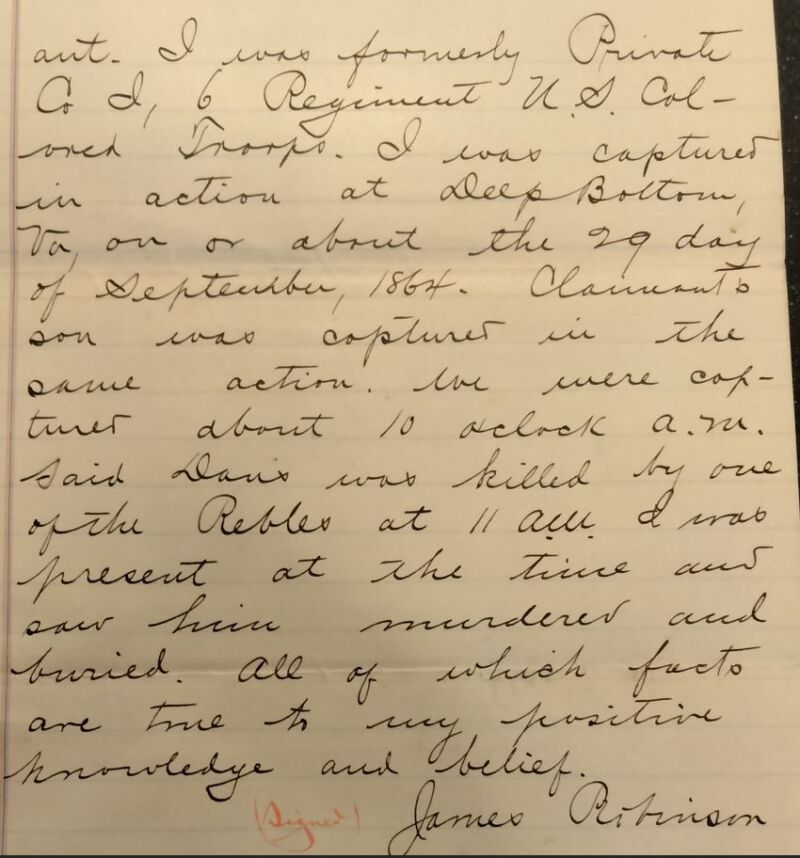 ant. I was formerly Private
Co I, 6 Regiment U.S. Col-
ored Troops. I was captured
in action at Deep Bottom,
Va, on or about the 29 day
of September, 1864. Claimant's
son was captured in the
same action. We were cap-
tured about 10 oclock a.m.
Said Davis was killed by one
of the Rebles at 11 a.m. I was
present at the time and
saw him murdered and
buried. All of which facts
are true to my positive
knowledge and belief.
(Signed) James Robinson